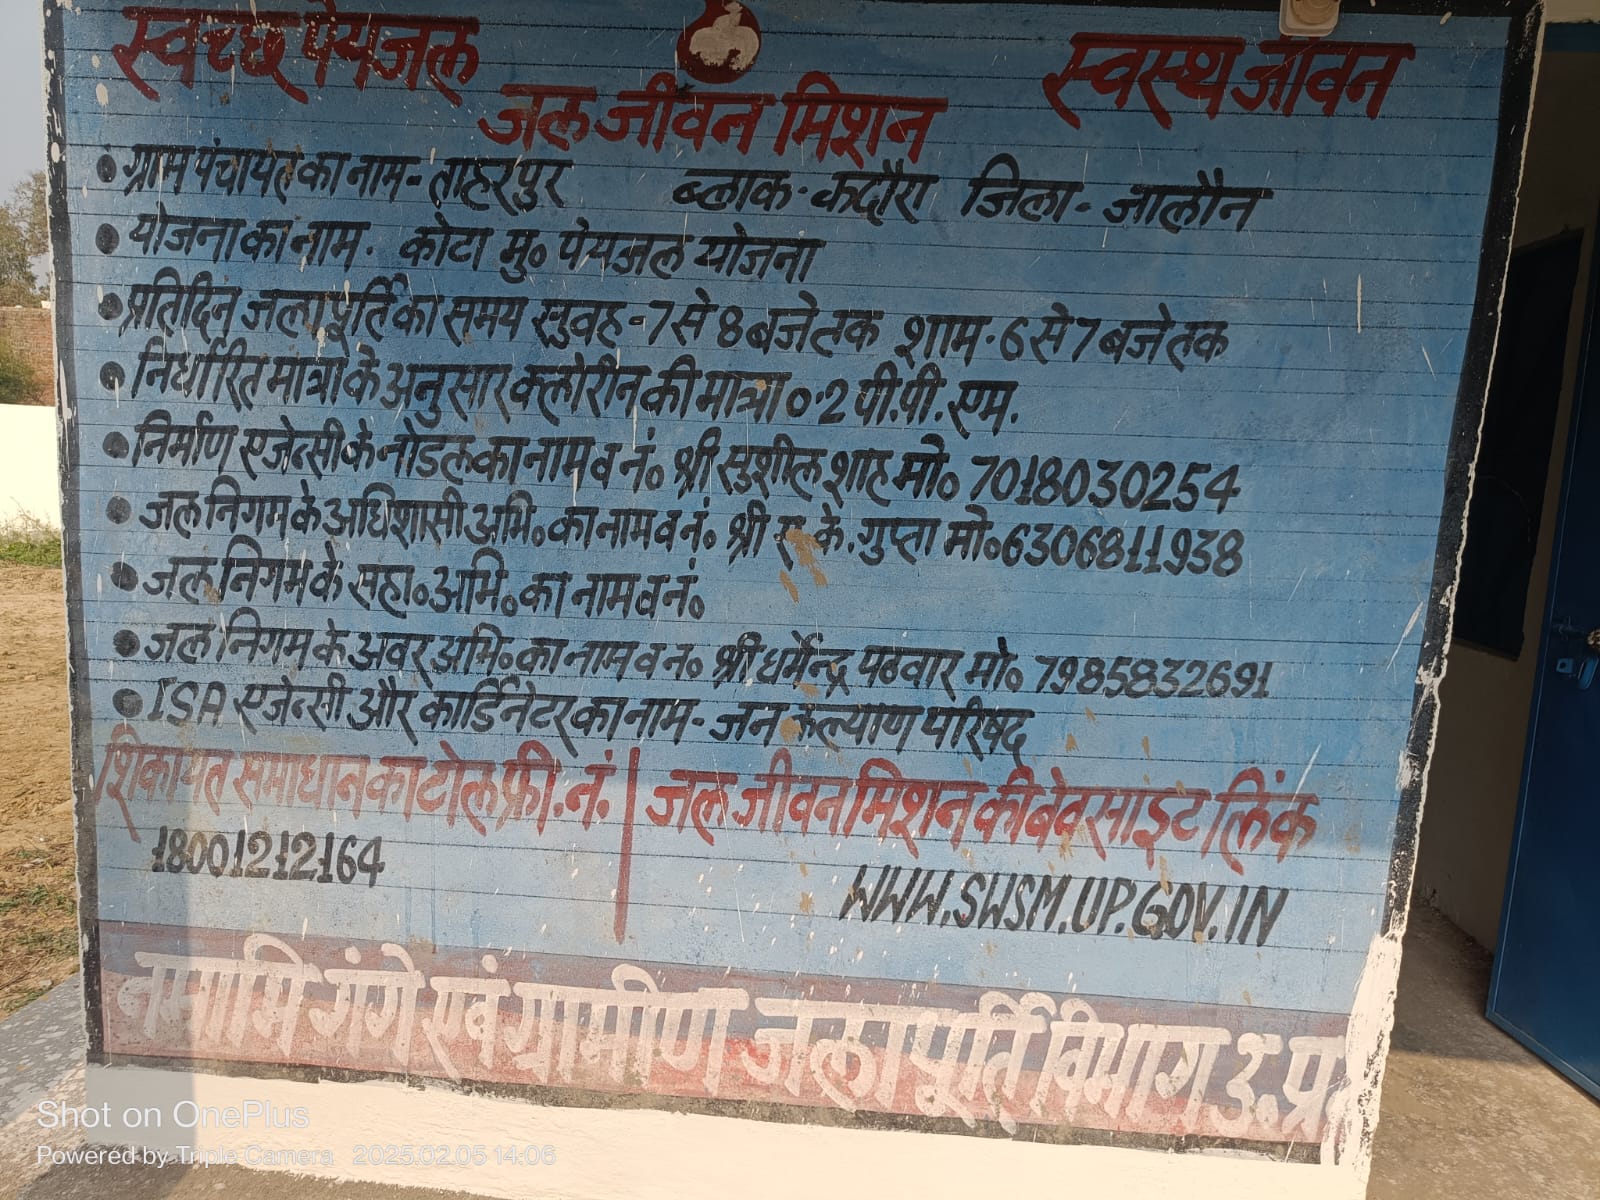 स्वच्छ पेयजल स्वस्थ जीवन
जल जीवन मिशन
• ग्राम पंचायत का नाम - ताहरपुर ब्लाक - कदौरा जिला - जालौन
• योजना का नाम - कोटा मु० पेयजल योजना
• प्रतिदिन जलापूर्ति का समय सुवह - 7 से 8 बजे तक शाम - 6 से 7 बजे तक
• निर्धारित मात्रा के अनुसार क्लोरीन की मात्रा 0.2 पी.पी. एम.
• निर्माण एजेन्सी के नोडल का नाम व नं० श्री सुशील शाह मो० 7018030254
• जल निगम के अधिशासी अभि० का नाम व नं० श्री ए.के. गुप्ता मो० 6306811938
• जल निगम के सहा० अभि० का नाम व नं०
• जल निगम के अवर अभि० का नाम व न० श्री धर्मेन्द्र पठवार मो० 7985832691
• ISA एजेन्सी और कार्डिनेटर का नाम - जन कल्याण परिषद
शिकायत समाधान का टोल फ्री. नं. | जल जीवन मिशन की बेवसाइट लिंक
18001212164 WWW.SWSM.UP.GOV.IN
नमामि गंगे एवं ग्रामीण जलापूर्ति विभाग उ.प्र.
Shot on OnePlus
Powered by Triple Camera 2025.02.05 14:06